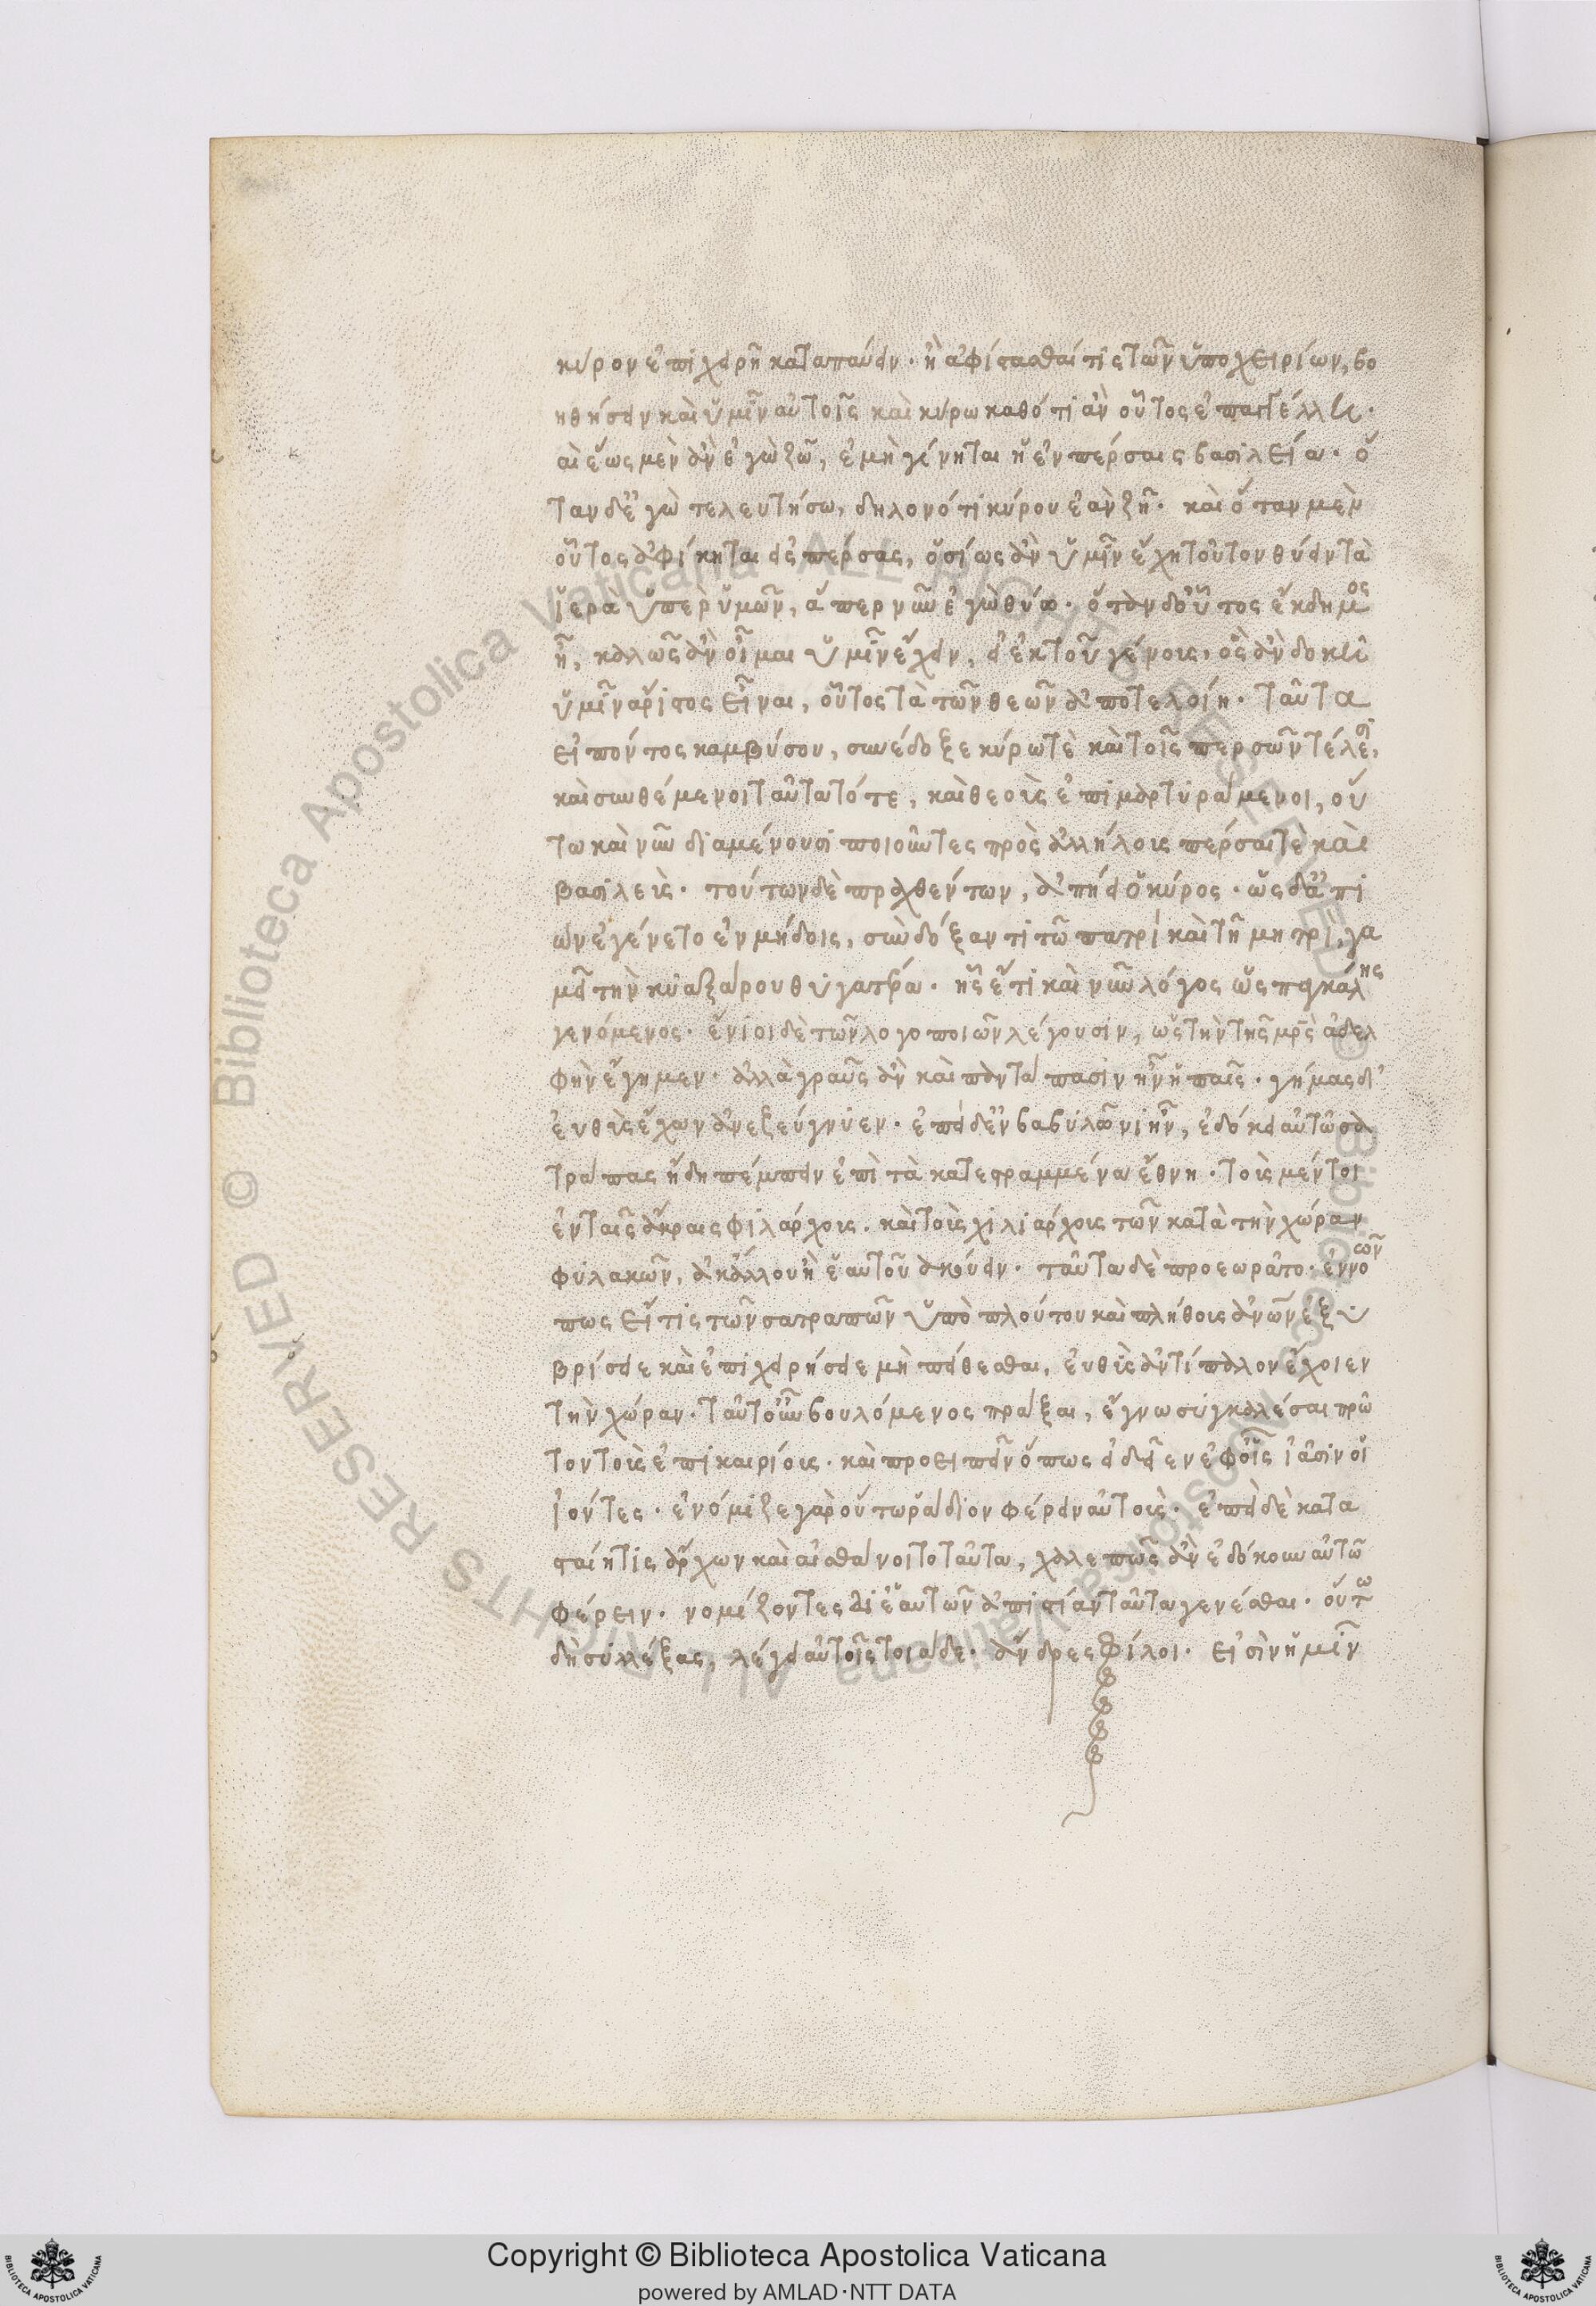 κῦρον ἐπιχειρῆ καταπαύειν· ἢ ἀφίστασθαί τις τῶν ὑποχειρίων, βο
ηθήσειν καὶ ὑμῖν αὐτοῖς καὶ κύρω καθότι ἂν οὗτος ἐπαγγέλλει·
αι ἕως μὲν ἂν ἐγὼ ζῶ, ἐμὴ γένηται ἡ ἐν πέρσαις βασιλεία· ὅ
ταν δ' ἐγὼ τελευτήσω, δηλονότι κύρου ἐὰν ζῆ· καὶ ὅταν μὲν
οὗτος ἀφίκηται εἰς πέρσας, ὁσίως ἂν ὑμῖν ἔχη τοῦτον θύειν τὰ
ἱερὰ ὑπὲρ ὑμῶν, ἅπερ νῦν ἐγὼ θύω· ὅταν δ' οὗτος ἔκδημος
ῆ, καλῶς ἂν οἶμαι ὑμῖν ἔχειν, εἰ ἐκ τοῦ γένους, ὃς ἂν δοκεῖ
ὑμῖν ἄριστος εἶναι, οὗτος τὰ τῶν θεῶν ἀποτελοίη· ταῦτα
εἰπόντος καμβύσου, συνέδοξε κύρω τὲ καὶ τοῖς περσῶν τέλεσι,
καὶ συνθέμενοι ταῦτα τότε, καὶ θεοὺς ἐπιμαρτυράμενοι, οὕ
τω καὶ νῦν διαμένουσι ποιοῦντες πρὸς ἀλλήλους πέρσαι τὲ καὶ
βασιλεύς· τούτων δὲ πραχθέντων, ἀπήει ὁ κύρος· ὡς δ' ἀπι
ὼν ἐγένετο ἐν μήδοις, συνδόξαν τι τῶ πατρί καὶ τῆ μητρί, γα
μεῖ τὴν κυαξάρου θυγατέρα· ἧς ἔτι καὶ νῦν λόγος ὡς παγκάλης
γενόμενος· ἔνιοι δὲ τῶν λογοποιῶν λέγουσιν, ὡς τὴν τῆς μρς ἀδελ
φὴν ἔγημεν· ἀλλὰ γραῦς ἂν καὶ πάντα πασιν ἦν ἡ παῖς· γήμας δ'
εὐθὺς ἔχων ἀνεζεύγνυεν· ἐπεὶ δ' ἐν βαβυλῶνι ἦν, ἐδόκει αὐτῶ σα
τράπας ἤδη πέμπειν ἐπὶ τὰ κατεστραμμένα ἔθνη· τοὺς μέντοι
ἐν ταῖς ἄκραις φυλάρχους, καὶ τοὺς χιλιάρχους τῶν κατὰ τὴν χώραν
φυλακῶν, οὐκ ἄλλου ἢ ἑαυτοῦ ἀκούειν· ταῦτα δὲ προεωρᾶτο· ἐννοῶν
πως εἴ τις τῶν σατραπῶν ὑπὸ πλούτου καὶ πλήθους ἀνῶν ἐξυ
βρίσειε καὶ ἐπιχειρήσειε μὴ πείθεσθαι, εὐθὺς ἀντίπαλον ἔχοιεν
τὴν χώραν· ταῦτ' οὖν βουλόμενος πράξαι, ἔγνω συγκαλέσαι πρῶ
τον τοὺς ἐπικαιρίους· καὶ προειπεῖν ὅπως εἰδεῖεν ἐφ' οἷς ἴασιν οἱ
ἰόντες· ἐνόμιζε γὰρ οὕτω ράδιον φέρειν αὐτοὺς· ἐπεὶ δὲ κατα
σταίη τις ἄρχων καὶ αἰσθάνοιτο ταῦτα, χαλεπῶς ἂν ἐδόκουν αὐτῶ
φέρειν· νομίζοντες δι' ἑαυτῶν ἀπιστίαν ταῦτα γενέσθαι· οὕτω
δὴ συλλέξας, λέγει αὐτοῖς τοιάδε· ἄνδρες φίλοι· εἰσὶν ἡμῖν